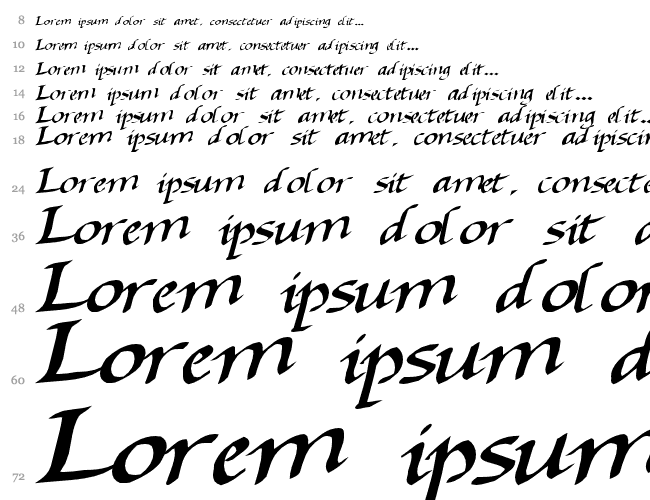 8 Lorem ipsum dolor sit amet, consectetuer adipiscing elit...
10 Lorem ipsum dolor sit amet, consectetuer adipiscing elit...
12 Lorem ipsum dolor sit amet, consectetuer adipiscing elit...
14 Lorem ipsum dolor sit amet, consectetuer adipiscing elit...
16 Lorem ipsum dolor sit amet, consectetuer adipiscing elit..
18 Lorem ipsum dolor sit amet, consectetuer adipiscin
24 Lorem ipsum dolor sit amet, consecte
36 Lorem ipsum dolor sit a
48 Lorem ipsum dolor
60 Lorem ipsum d
72 Lorem ipsum